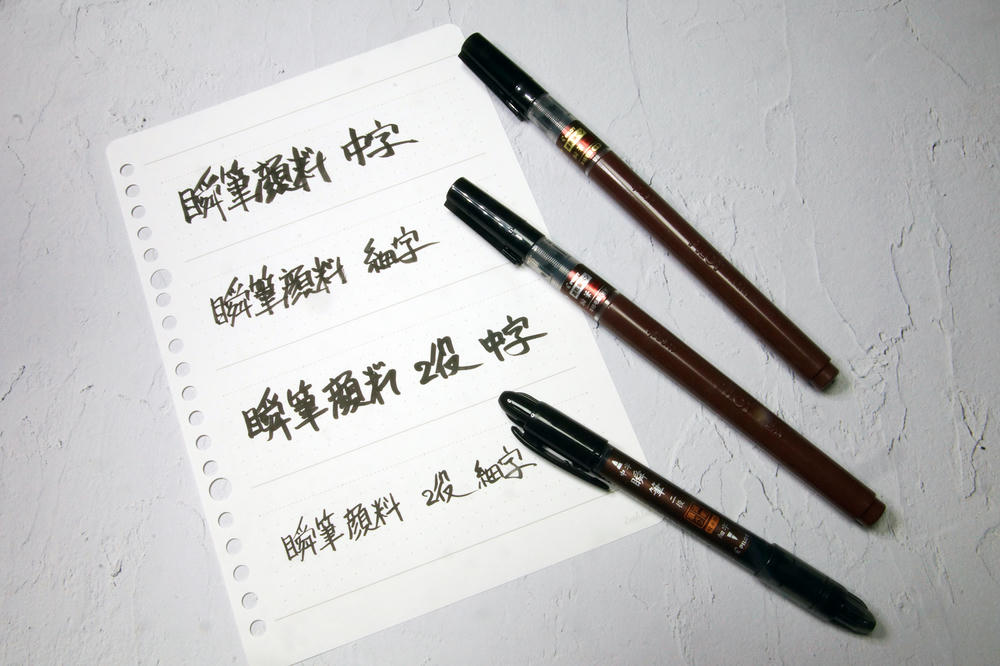 瞬筆顔料 中字
瞬筆顔料 細字
瞬筆顔料 2役 中字
瞬筆顔料 2役 細字
瞬筆 二役
PILOT